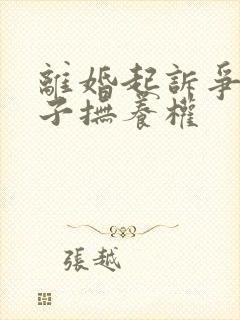 離婚起訴爭
子撫養權
張越